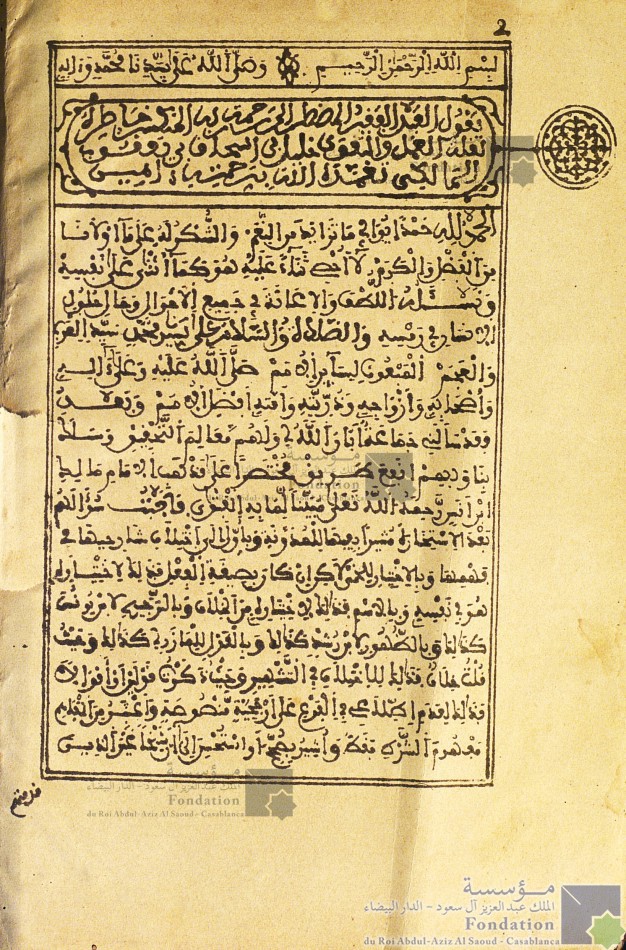 2
بسم الله الرحمن الرحيم وصلى الله على سيدنا محمد وآله
يقول العبد الفقير المضطر لرحمة ربه المنكسر خاطره
لقلة العمل والتقوى خليل بن إسحاق بن يعقوب
المالكي تغمده الله برحمته آمين
الحمد لله حمدا يوافي ما تزايد من النعم والشكر له على ما أولانا
من الفضل والكرم لا أحصي ثناء عليه هو كما أثنى على نفسه
ونسئله اللطف والإعانة في جميع الأحوال وحال حلول
الإنسان في رمسه والصلاة والسلام على سيدنا محمد سيد العرب
والعجم المبعوث لسائر الأمم صلى الله عليه وعلى آله
وأصحابه وأزواجه وذريته وأمته أفضل الأمم وبعد
فقد سألني جماعة أبان الله لي ولهم معالم التحقيق وسلك
بنا وبهم أنفع طريق مختصرا على مذهب الإمام مالك
ابن أنس رحمه الله تعالى مبينا لما به الفتوى فأجبت سؤالهم
بعد الاستخارة مشيرا بفيها للمدونة وبأول إلى اختلاف شارحيها في
فهمها وبالاختيار للخمي لاكن إن كان بصيغة الفعل فذلك لاختياره
هو في نفسه وبالاسم فذلك لاختياره من الخلاف وبالترجيح لابن يونس
كذلك وبالظهور لابن رشد كذلك وبالقول للمازري كذلك وحيث
قلت خلاف فذلك للاختلاف في التشهير وحيث ذكرت قولين أو أقوالا
فذلك لعدم اطلاعي في الفرع على أرجحية منصوصة وأعتبر من المفاهيم
مفهوم الشرط فقط وأشير بصحح أو استحسن إلى أن شيخا غير الذين
قدمتهم
مؤسسة
الملك عبد العزيز آل سعود - الدار البيضاء
Fondation
du Roi Abdul-Aziz Al Saoud - Casablanca